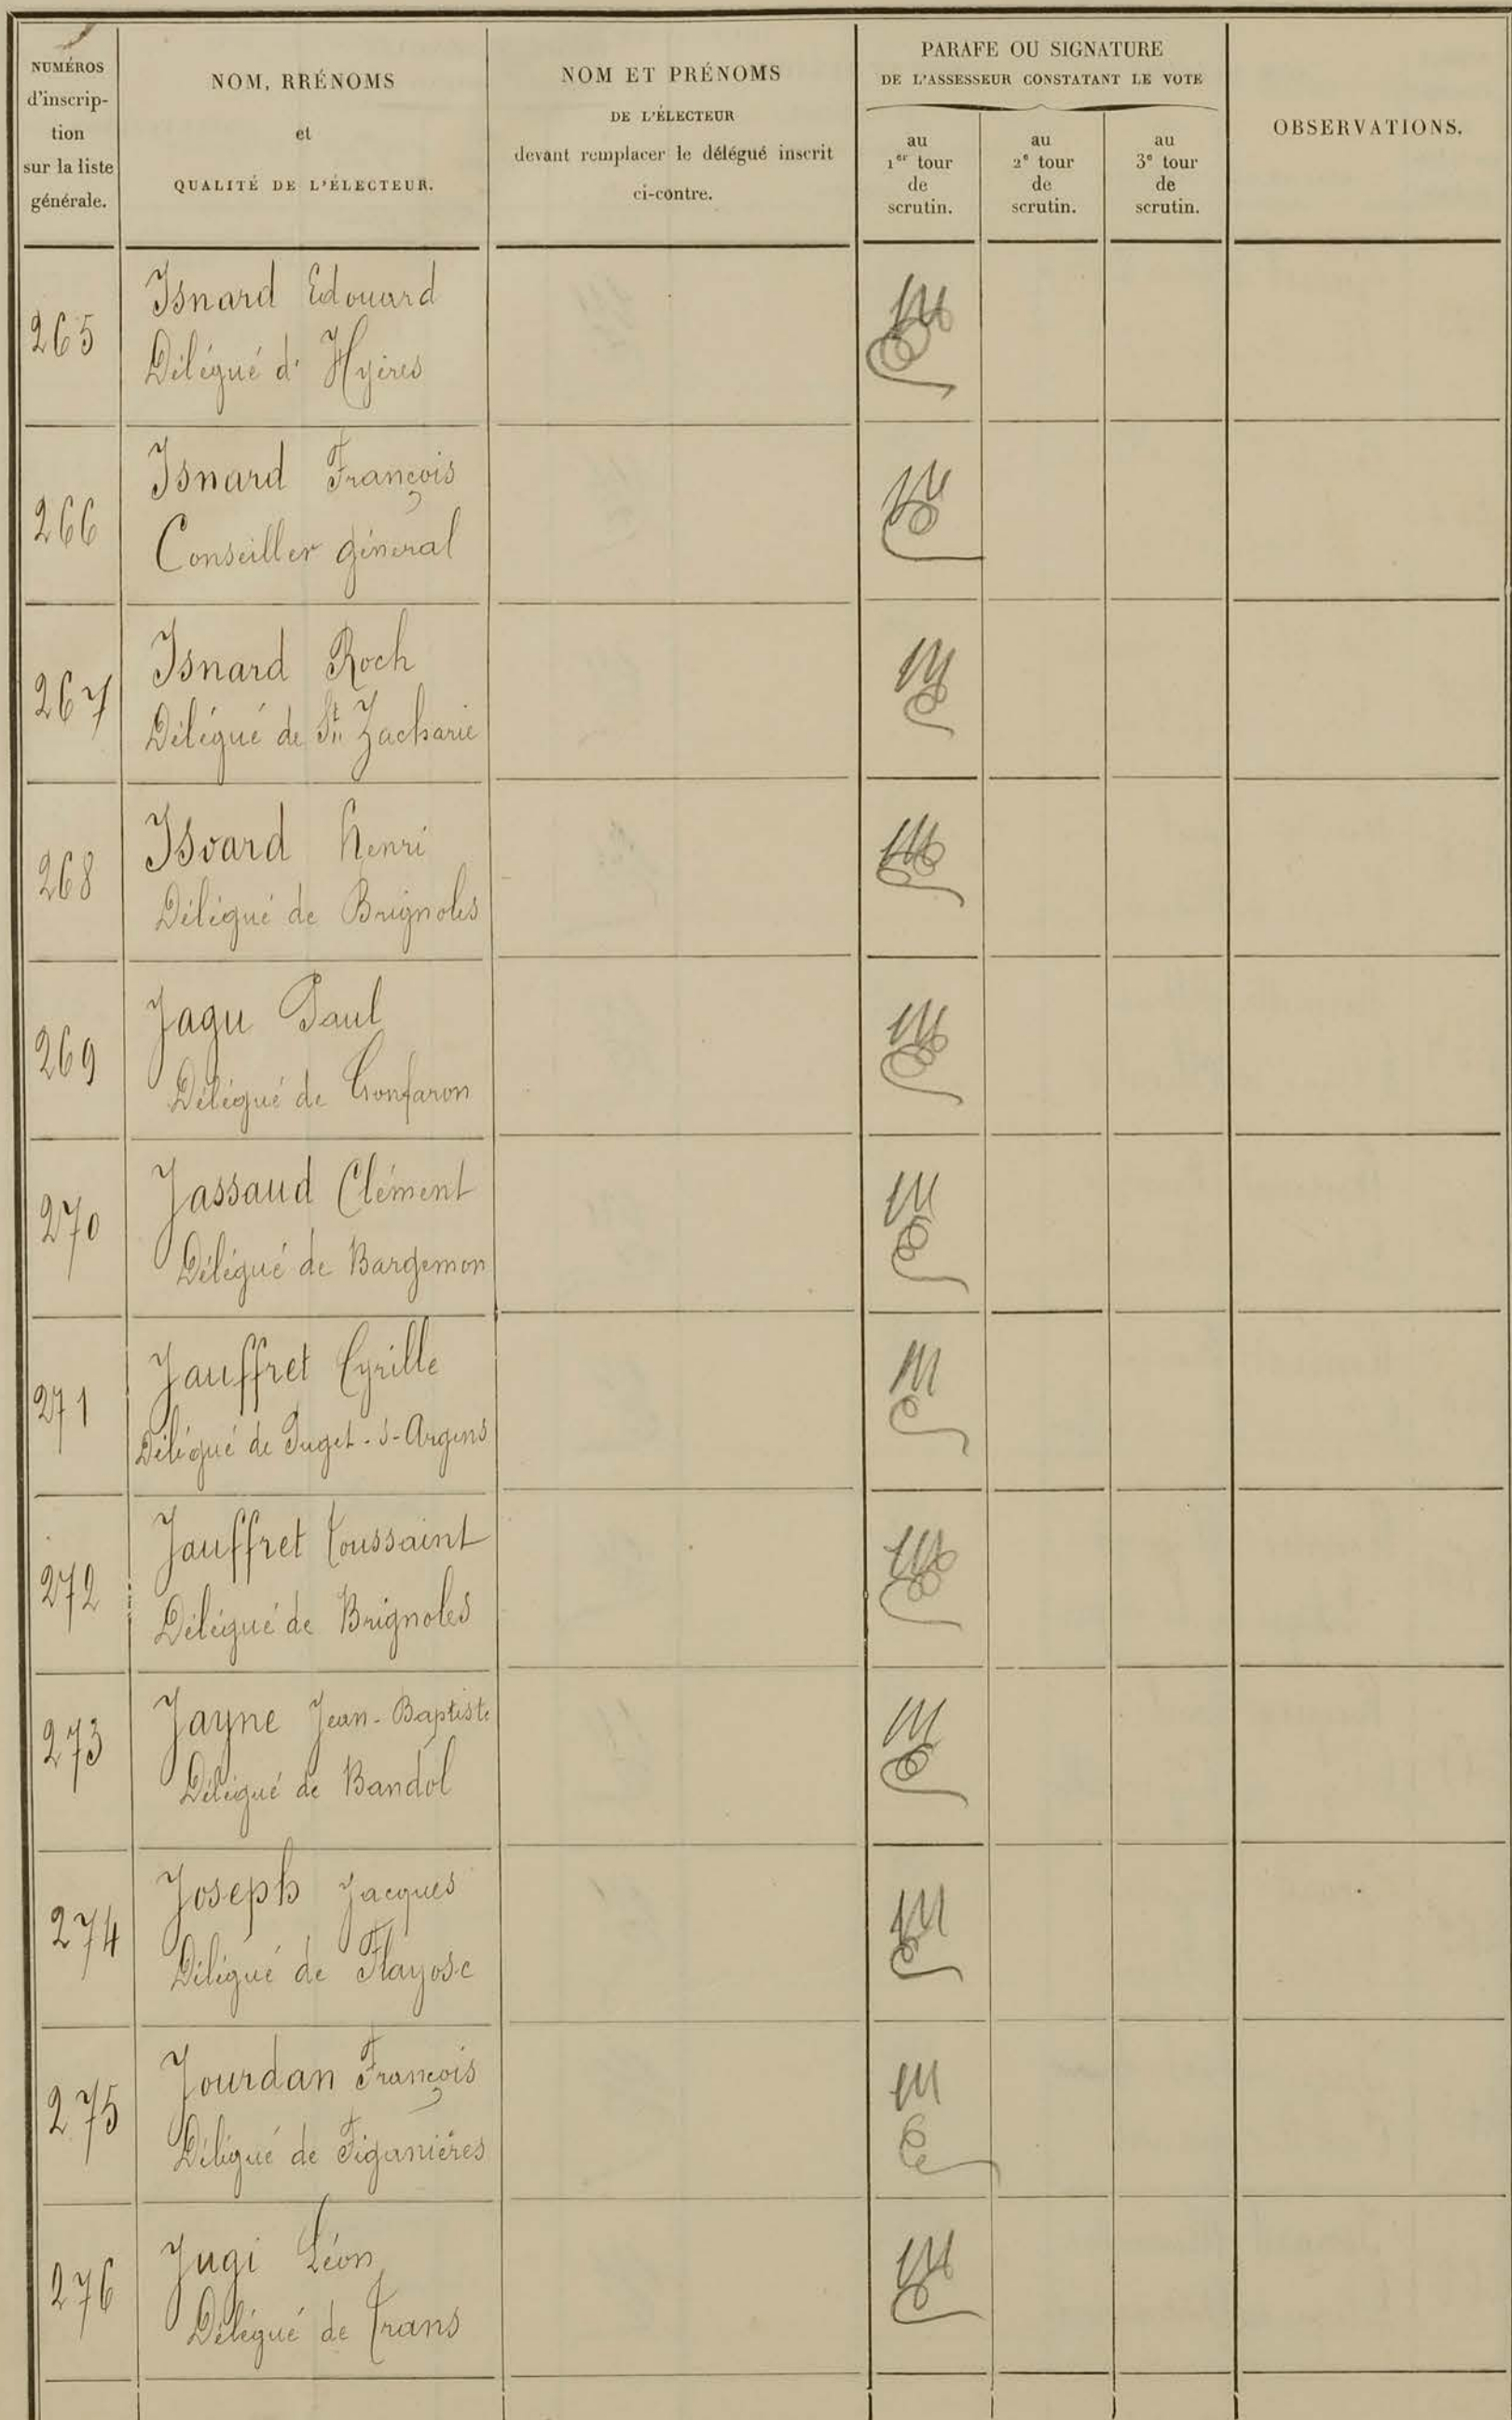 NUMÉROS
d'inscrip-
tion
sur la liste
générale.
NOM, RRÉNOMS
et
QUALITÉ DE L'ÉLECTEUR.
NOM ET PRÉNOMS
DE L'ÉLECTEUR
devant remplacer le délégué inscrit
ci-contre.
PARAFE OU SIGNATURE
DE L'ASSESSEUR CONSTATANT LE VOTE
au
1er tour
de
scrutin.
au
2e tour
de
scrutin.
au
3e tour
de
scrutin.
OBSERVATIONS.
265
Isnard Edouard
Délégué d'Hyères
266
Isnard François
Conseiller général
267
Isnard Roch
Délégué de St Zacharie
268
Isvard Henri
Délégué de Brignoles
269
Jagu Paul
Délégué de Gonfaron
270
Jassaud Clément
Délégué de Bargemon
271
Jauffret Cyrille
Délégué de Puget-s-Argens
272
Jauffret Toussaint
Délégué de Brignoles
273
Jayne Jean-Baptiste
Délégué de Bandol
274
Joseph Jacques
Délégué de Flayosc
275
Jourdan François
Délégué de Figanières
276
Jugi Léon
Délégué de Trans